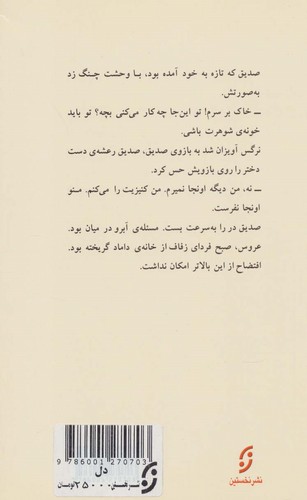 صدیق که تازه به خود آمده بود، با وحشت چنگ زد
به‌صورتش.
ــ خاک بر سرم! تو این‌جا چه‌کار می‌کنی بچه؟ تو باید
خونه‌ی شوهرت باشی.
نرگس آویزان شد به بازوی صدیق، صدیق رعشه‌ی دست
دختر را روی بازویش حس کرد.
ــ نه، من دیگه اونجا نمیرم. من کنیزیت را می‌کنم. منو
اونجا نفرست.
صدیق در را به‌سرعت بست. مسئله‌ی آبرو در میان بود.
عروس، صبح فردای زفاف از خانه‌ی داماد گریخته بود.
افتضاح از این بالاتر امکان نداشت.
9 786001 270703
دل
۳۵۰۰۰تومان
نشر نخستین